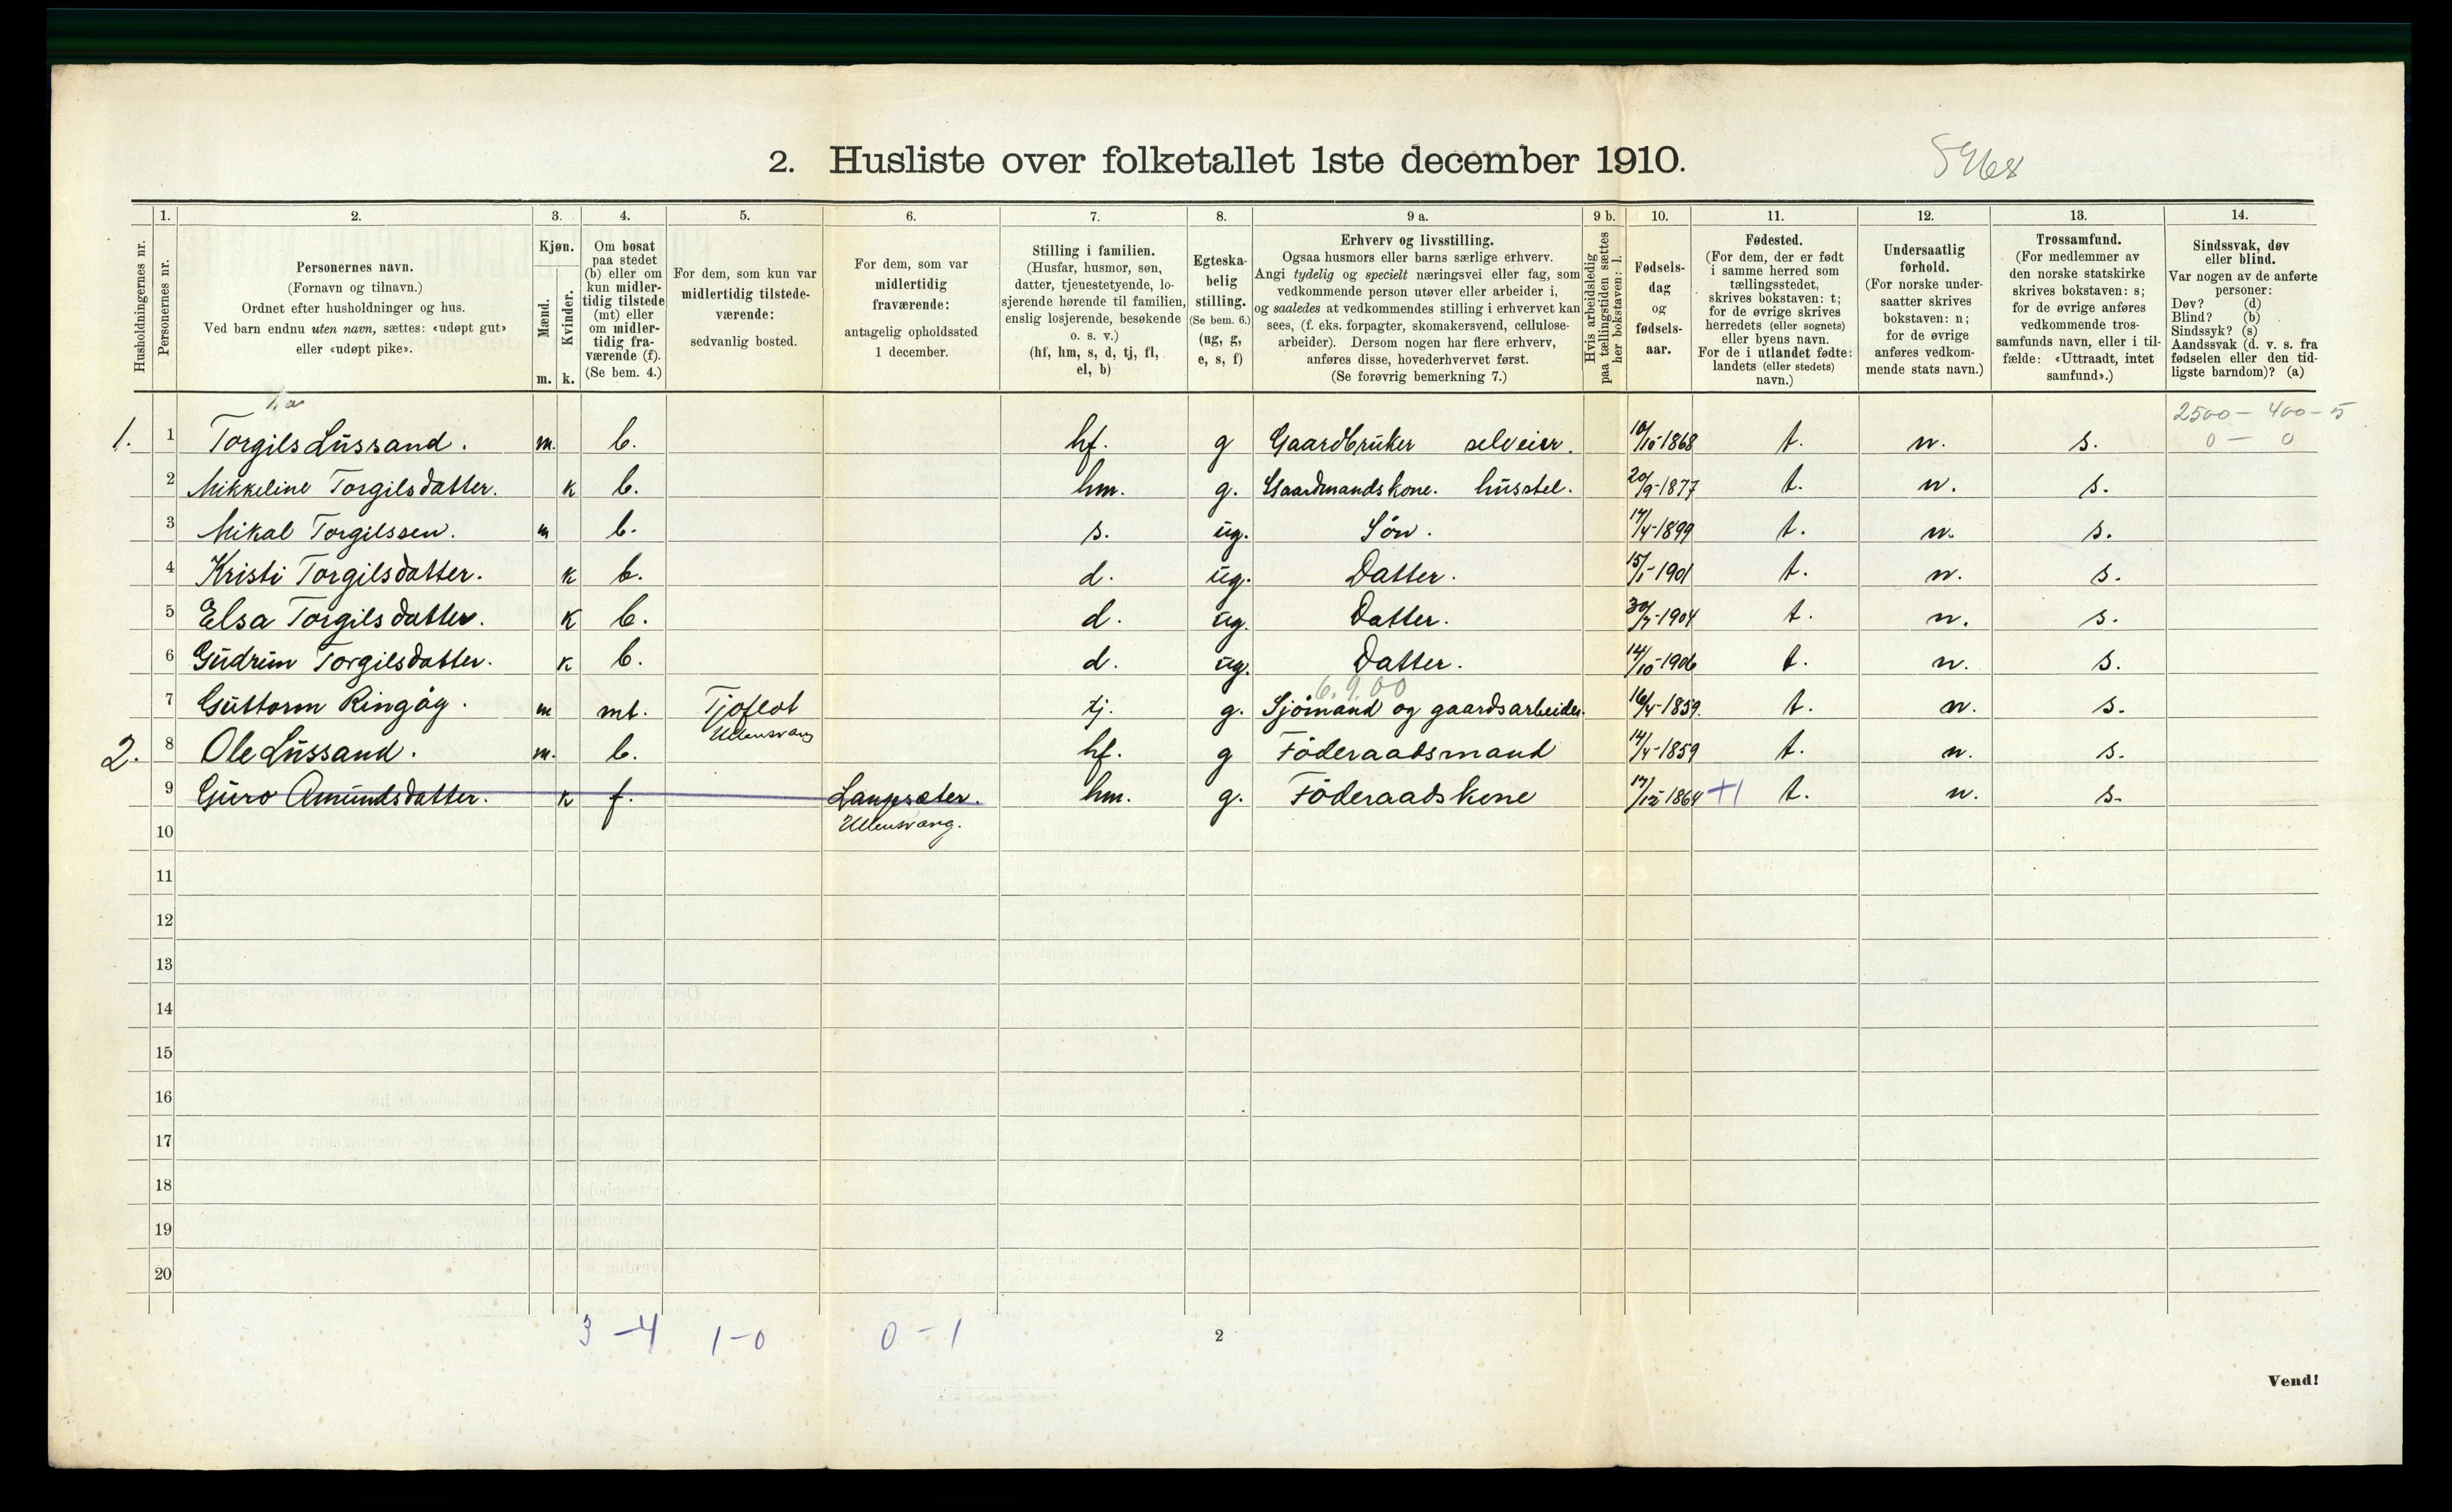 2. Husliste over folketallet 1ste december 1910.
1. 2. 3. 4. 5. 6. 7. 8. 9 a. 9 b. 10. 11. 12. 13. 14.
Husholdningernes nr.
Personernes nr.
Personernes navn.
(Fornavn og tilnavn.)
Ordnet efter husholdninger og hus.
Ved barn endnu uten navn, sættes: «udøpt gut»
eller «udøpt pike».
Kjøn.
Mænd.
Kvinder.
m. k.
Om bosat
paa stedet
(b) eller om
kun midler-
tidig tilstede
(mt) eller
om midler-
tidig fra-
værende (f).
(Se bem. 4.)
For dem, som kun var
midlertidig tilstede-
værende:
sedvanlig bosted.
For dem, som var
midlertidig
fraværende:
antagelig opholdssted
1 december.
Stilling i familien.
(Husfar, husmor, søn,
datter, tjenestetyende, lo-
sjerende hørende til familien,
enslig losjerende, besøkende
o. s. v.)
(hf, hm, s, d, tj, fl,
el, b)
Egteska-
belig
stilling.
(Se bem. 6.)
(ug, g,
e, s, f)
Erhverv og livsstilling.
Ogsaa husmors eller barns særlige erhverv.
Angi tydelig og specielt næringsvei eller fag, som
vedkommende person utøver eller arbeider i,
og saaledes at vedkommendes stilling i erhvervet kan
sees, (f. eks. forpagter, skomakersvend, cellulose-
arbeider). Dersom nogen har flere erhverv,
anføres disse, hovederhvervet først.
(Se forøvrig bemerkning 7.)
Hvis arbeidsledig
paa tællingstiden sættes
her bokstaven: l.
Fødsels-
dag
og
fødsels-
aar.
Fødested.
(For dem, der er født
i samme herred som
tællingsstedet,
skrives bokstaven: t;
for de øvrige skrives
herredets (eller sognets)
eller byens navn.
For de i utlandet fødte:
landets (eller stedets)
navn.)
Undersaatlig
forhold.
(For norske under-
saatter skrives
bokstaven: n;
for de øvrige
anføres vedkom-
mende stats navn.)
Trossamfund.
(For medlemmer av
den norske statskirke
skrives bokstaven: s;
for de øvrige anføres
vedkommende tros-
samfunds navn, eller i til-
fælde: «Uttraadt, intet
samfund».)
Sindssvak, døv
eller blind.
Var nogen av de anførte
personer:
Døv? (d)
Blind? (b)
Sindssyk? (s)
Aandssvak (d. v. s. fra
fødselen eller den tid-
ligste barndom)? (a)
2500 - 400 - 5
0 - 0
1. 1 Torgils Lussand. m. b. hf. g Gaardbruker selveier. 10/10-1868 t. n. s.
2 Mikkeline Torgilsdatter. k b. hm. g. Gaardmandskone. husstel. 20/9-1877 t. n. s.
3 Mikal Torgilssen. m b. s. ug. Sön. 17/4-1899 t. n. s.
4 Kristi Torgilsdatter. k b. d. ug. Datter. 15/1-1901 t. n. s.
5 Elsa Torgilsdatter. k b. d. ug. Datter. 30/7-1904 t. n. s.
6 Gudrun Torgilsdatter. k b. d. ug. Datter. 14/10-1906 t. n. s.
6.9.00
7 Guttorm Ringöy. m mt. Tjoflot tj. g. Sjömand og gaardsarbeider. 16/4-1859. t. n. s.
Ullensvang
2. 8 Ole Lussand. m. b. hf. g Föderaadsmand 14/4-1859 t. n. s.
9 Guro Amundsdatter. k f. Langesæter. hm. g. Föderaadskone 17/12-1864 +1 t. n. s.
Ullensvang.
10
11
12
13
14
15
16
17
18
19
20
3 - 4 1 - 0 0 - 1
2
Vend!